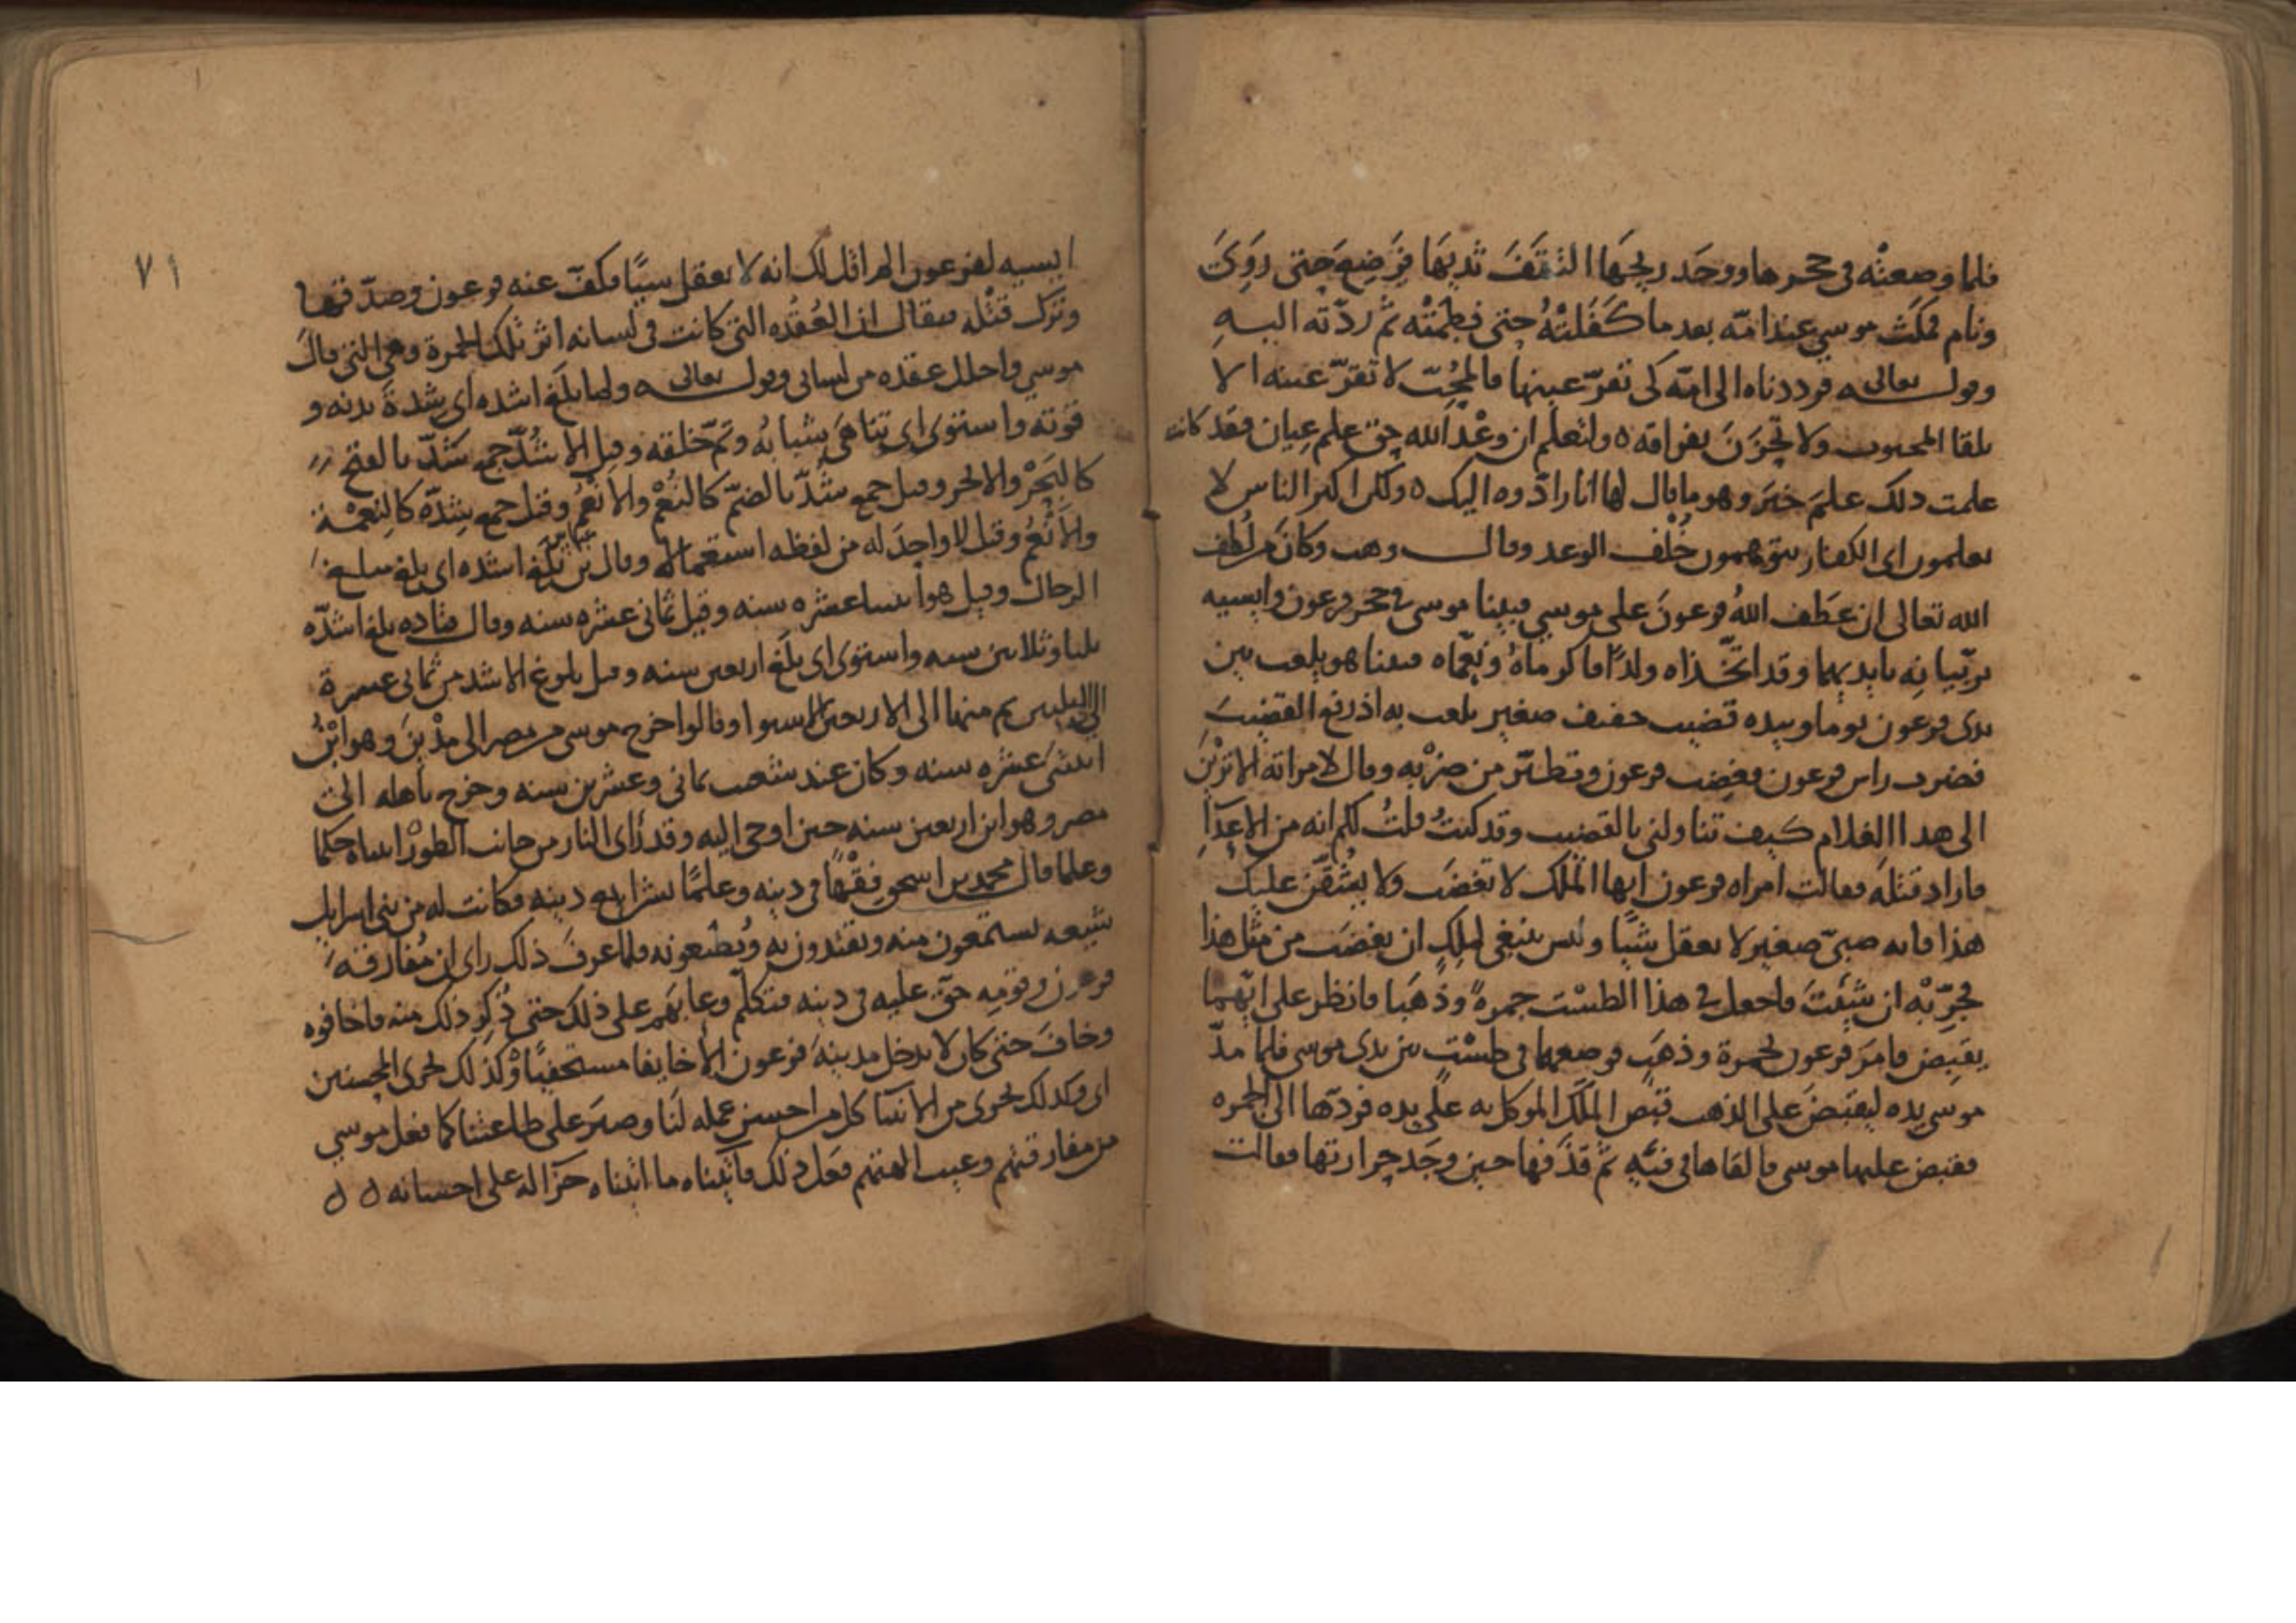 فلما وضعته في حجرها ووجد ريحها التقف ثديها فرضع حتى روي
ونام فمكث موسى عند امّه بعد ما كفلته حتى فطمته ثم ردّته اليه
وقوله تعالى فرددناه الى امّه كي تقرّ عينها فالمحبّ لا تقرّ عينه الا
بلقا المحبوب ولا تحزن بفراقه ه ولتعلم ان وعد الله حق علم عيان فقد كانت
علمت ذلك علم خبر وهو ما قال لها انا رادّوه اليك ه ولكن اكثر الناس لا
يعلمون اي الكفار يتوهمون خلف الوعد وقال وهب وكان من لطف
الله تعالى ان عطف الله فرعون على موسى فبينا موسى في حجر فرعون وابسيه
يربّيانه بايديهما وقد اتخذاه ولدًا فاكرماه ونعّماه فبينا هو يلعب بين
يدي فرعون يوما وبيده قضيب خفيف صغير يلعب به اذ رفع القضيب
فضرب راس فرعون فغضب فرعون وتطيّر من ضربه وقال لامراته الا ترين
الى هذا الغلام كيف تناولني بالقضيب وقد كنت قلت لكم انه من الاعدآ
فاراد قتله فقالت امراه فرعون ايها الملك لا تغضب ولا يشقّن عليك
هذا فانه صبيّ صغير لا يعقل شيًا وليس ينبغي لملك ان يغضب من مثل هذا
فجرّبه ان شئت فاجعل في هذا الطست جمرة وذهبا فانظر على ايّهما
يقبض فامر فرعون بجمرة وذهب فوضعهما في طست بين يدي موسى فلما مدّ
موسى يده ليقبض على الذهب قبض الملك الموكل به على يده فردّها الى الجمره
فقبض عليها موسى فالقاها في فيه ثم قذفها حين وجد حرارتها فقالت
٧١
ابسيه لفرعون الم اقل لك انه لا يعقل شيًا فكفّ عنه فرعون وصدّقها
وترك قتله فيقال ان العقده التي كانت في لسانه اثر تلك الجمرة وهي التي قال
موسى واحلل عقده من لساني وقوله تعالى ه ولما بلغ اشده اي شدة بدنه و
قوته واستوى اي تناهى شبابه وتمّ خلقه وقيل الاشدّ جمع شدّ بالفتح
كالبحر والابحر وقيل جمع شدّ بالضمّ كالنعم والانعم وقيل جمع شدّة كالنعمة
والانعم وقيل لا واحد له من لفظه استعمالا وقال بلغ اشده اي بلغ مبلغ
الرجال وقيل هو عشره سنه وقيل ثماني عشره سنه وقال قتاده بلغ اشدّه
ثلثا وثلاثين سنه واستوى اي بلغ اربعين سنه وقيل بلوغ الاشد من ثماني عشرة
ثم منها الى الاربعين الاستوا وقالوا خرج موسى من مصر الى مدين وهو ابن
اثنتى عشره سنه وكان عند شعيب ثماني وعشرين سنه وخرج باهله الى
مصر وهو ابن اربعين سنه حين اوحى اليه وقد رأى النار من جانب الطور اتيناه حكما
وعلما قال محمد بن اسحق فقها في دينه وعلمًا بشرايع دينه فكانت له من بني اسرايل
شيعه يستمعون منه ويقتدون به ويطيعونه فلما عرف ذلك راى ان مفارقه
فرعون وقومه حق عليه في دينه فتكلم وعابهم على ذلك حتى ذكر ذلك منه فاخافوه
وخاف حتى كان لا يدخل مدينه فرعون الا خايفا مستخفيًا وكذلك نجزي المحسنين
اي وكذلك نجزي من الانبيا كل من احسن عمله لنا وصبر على طاعتنا كما فعل موسى
من مفارقتهم وعيب الهتهم فعل ذلك فآتيناه ما اتيناه جزا له على احسانه ه ه